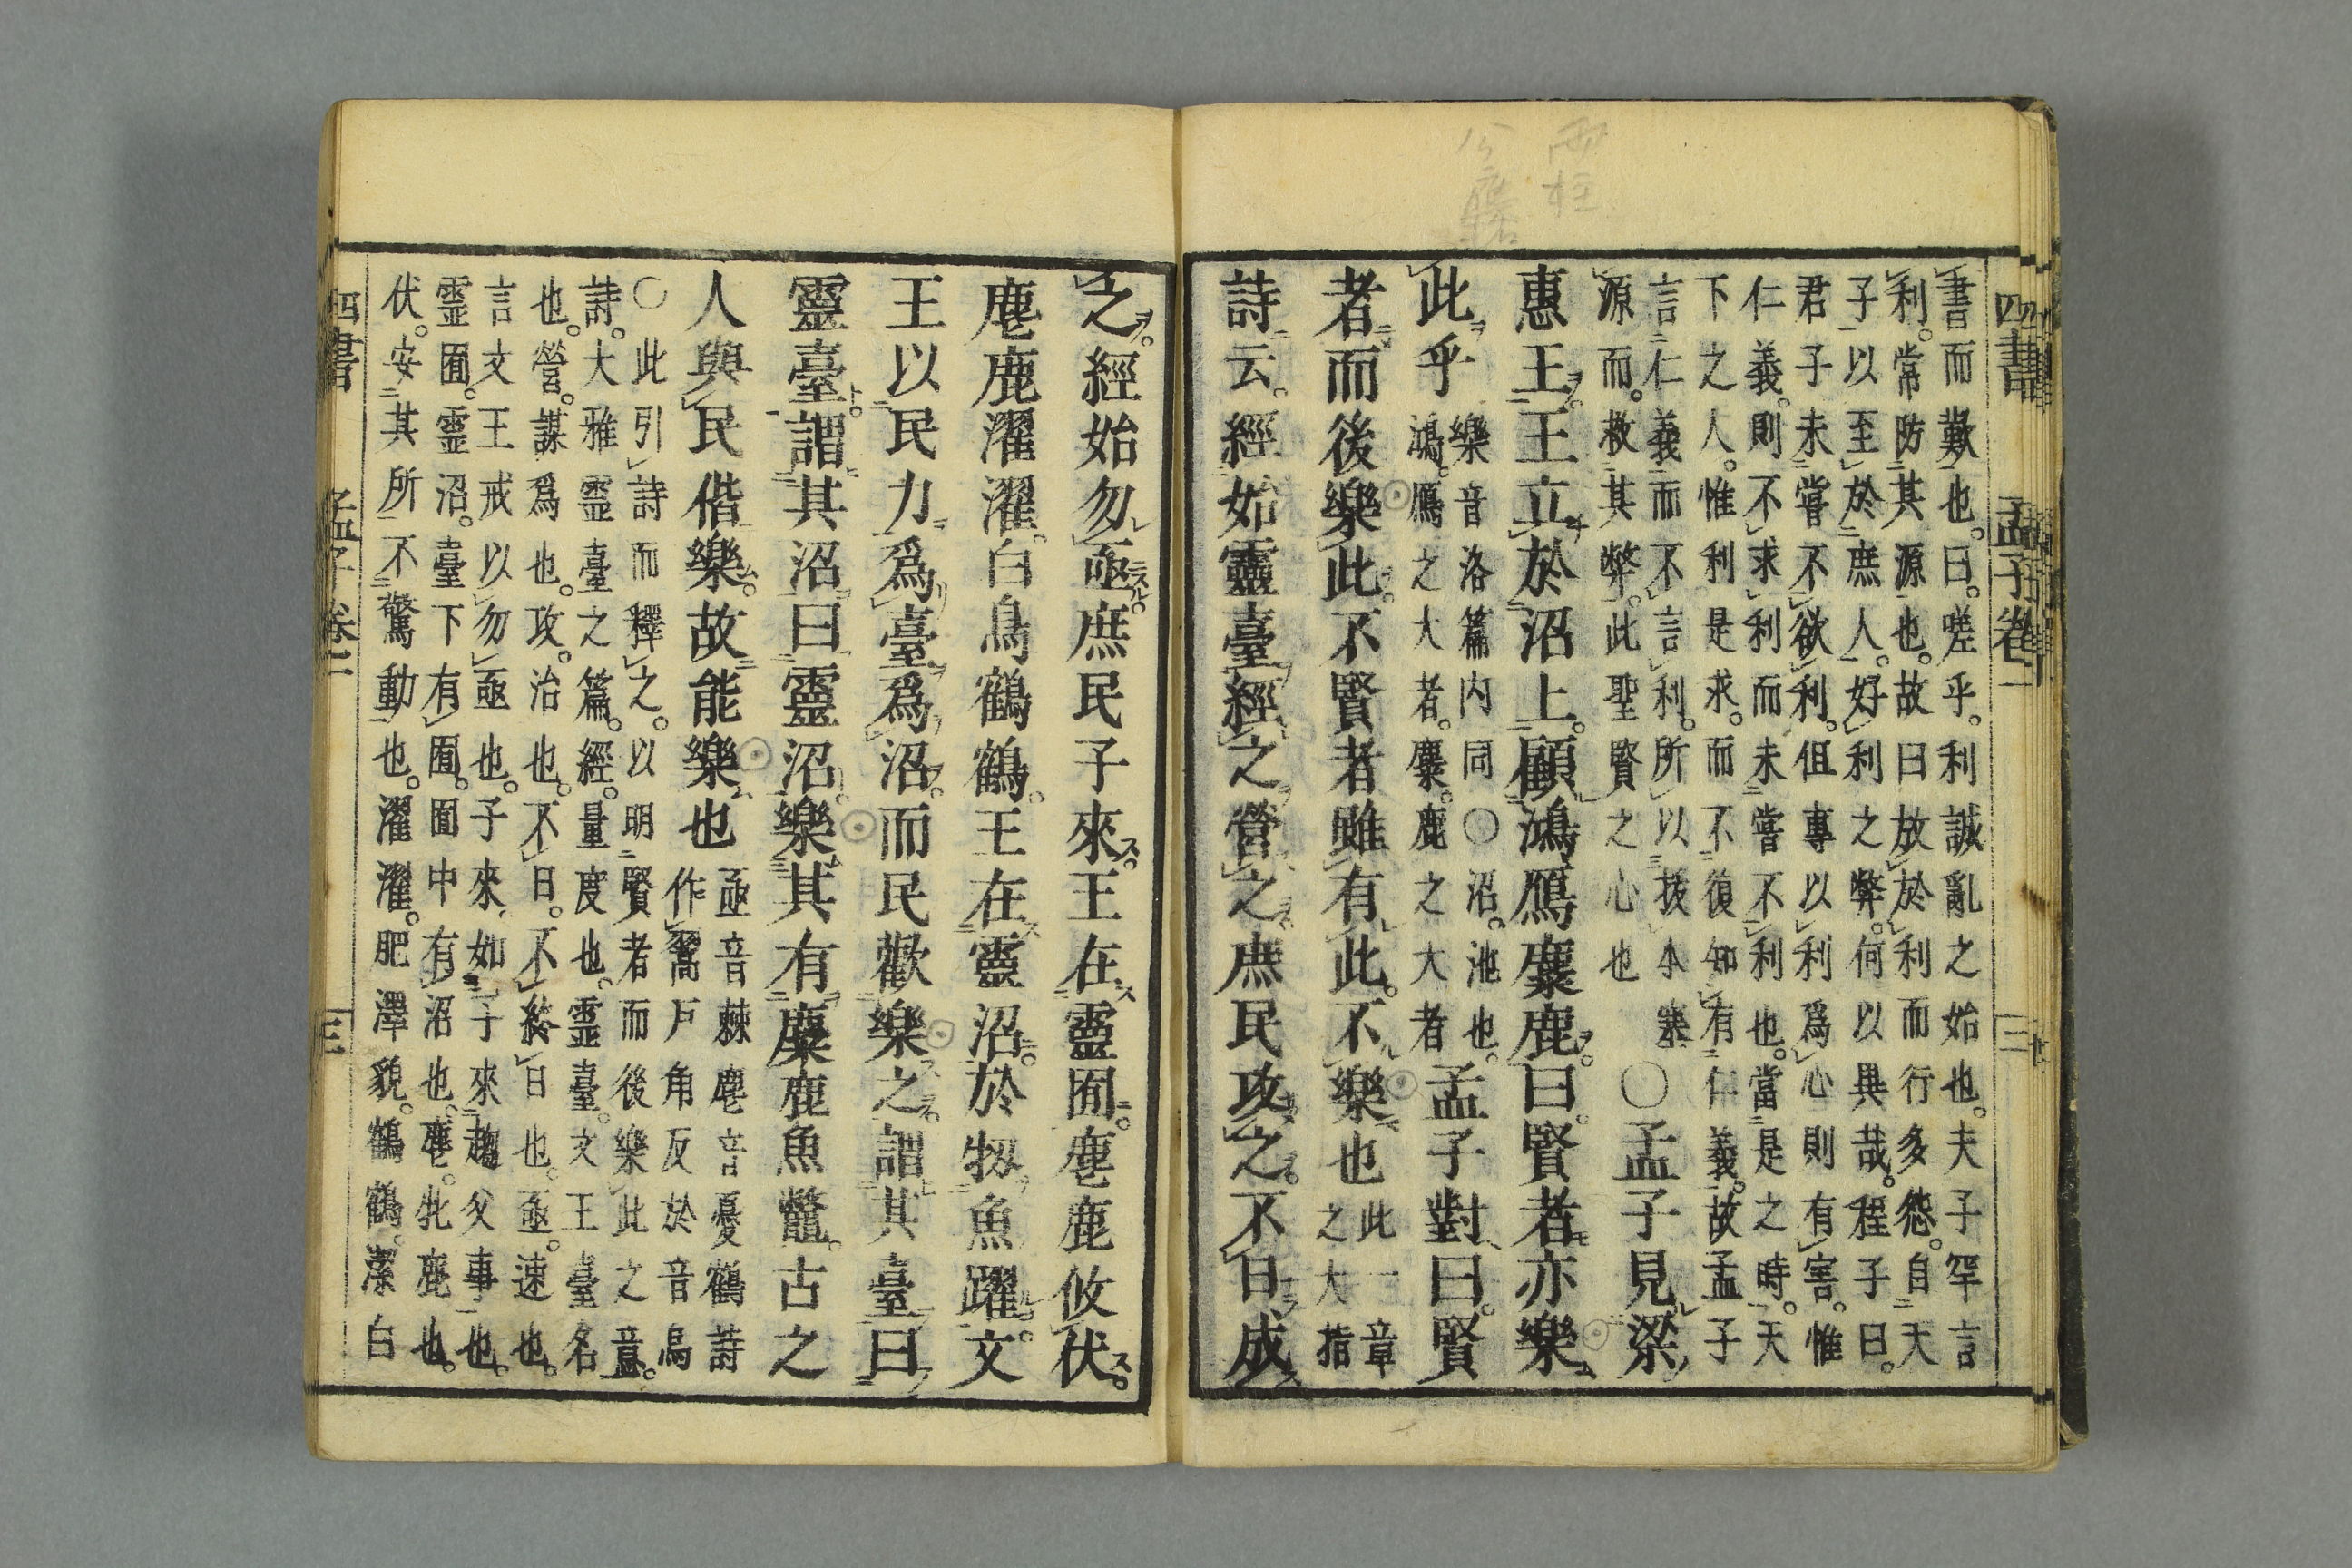 四書 孟子卷一 三
書而歎也。曰。嗟乎。利誠亂之始也。夫子罕言
利。常防其源也。故曰放於利而行多怨。自天
子以至於庶人。好利之弊。何以異哉。程子曰。
君子未嘗不欲利。但專以利爲心則有害。惟
仁義。則不求利而未嘗不利也。當是之時。天
下之人。惟利是求。而不復知有仁義。故孟子
言仁義而不言利。所以拔本塞
源而。救其弊。此聖賢之心也
○孟子見梁
惠王王立於沼上。顧鴻鴈麋鹿。曰。賢者亦樂
此乎
樂音洛篇内同○沼。池也。
鴻。鴈之大者。麋。鹿之大者
孟子對曰。賢
者而後樂此。不賢者雖有此。不樂也
此一章
之大指
詩云。經始靈臺經之營之。庶民攻之。不日成
之。經始勿亟。庶民子來。王在靈囿。麀鹿攸伏。
麀鹿濯濯。白鳥鶴鶴。王在靈沼。於牣魚躍。文
王以民力爲臺爲沼。而民歡樂之。謂其臺曰
靈臺。謂其沼曰靈沼。樂其有麋鹿魚鼈。古之
人與民偕樂。故能樂也
亟音棘麀音憂鶴詩
作翯戶角反於音烏
○此引詩而釋之。以明賢者而後樂此之意。
詩。大雅靈臺之篇。經。量度也。靈臺。文王臺名
也。營。謀爲也。攻。治也。不日。不終日也。亟。速也。
言文王戒以勿亟也。子來如子來趨父事也。
靈囿。靈沼。臺下有囿。囿中有沼也。麀。牝鹿也。
伏。安其所不驚動也。濯濯。肥澤貌。鶴鶴。潔白
四書 孟子卷一 三